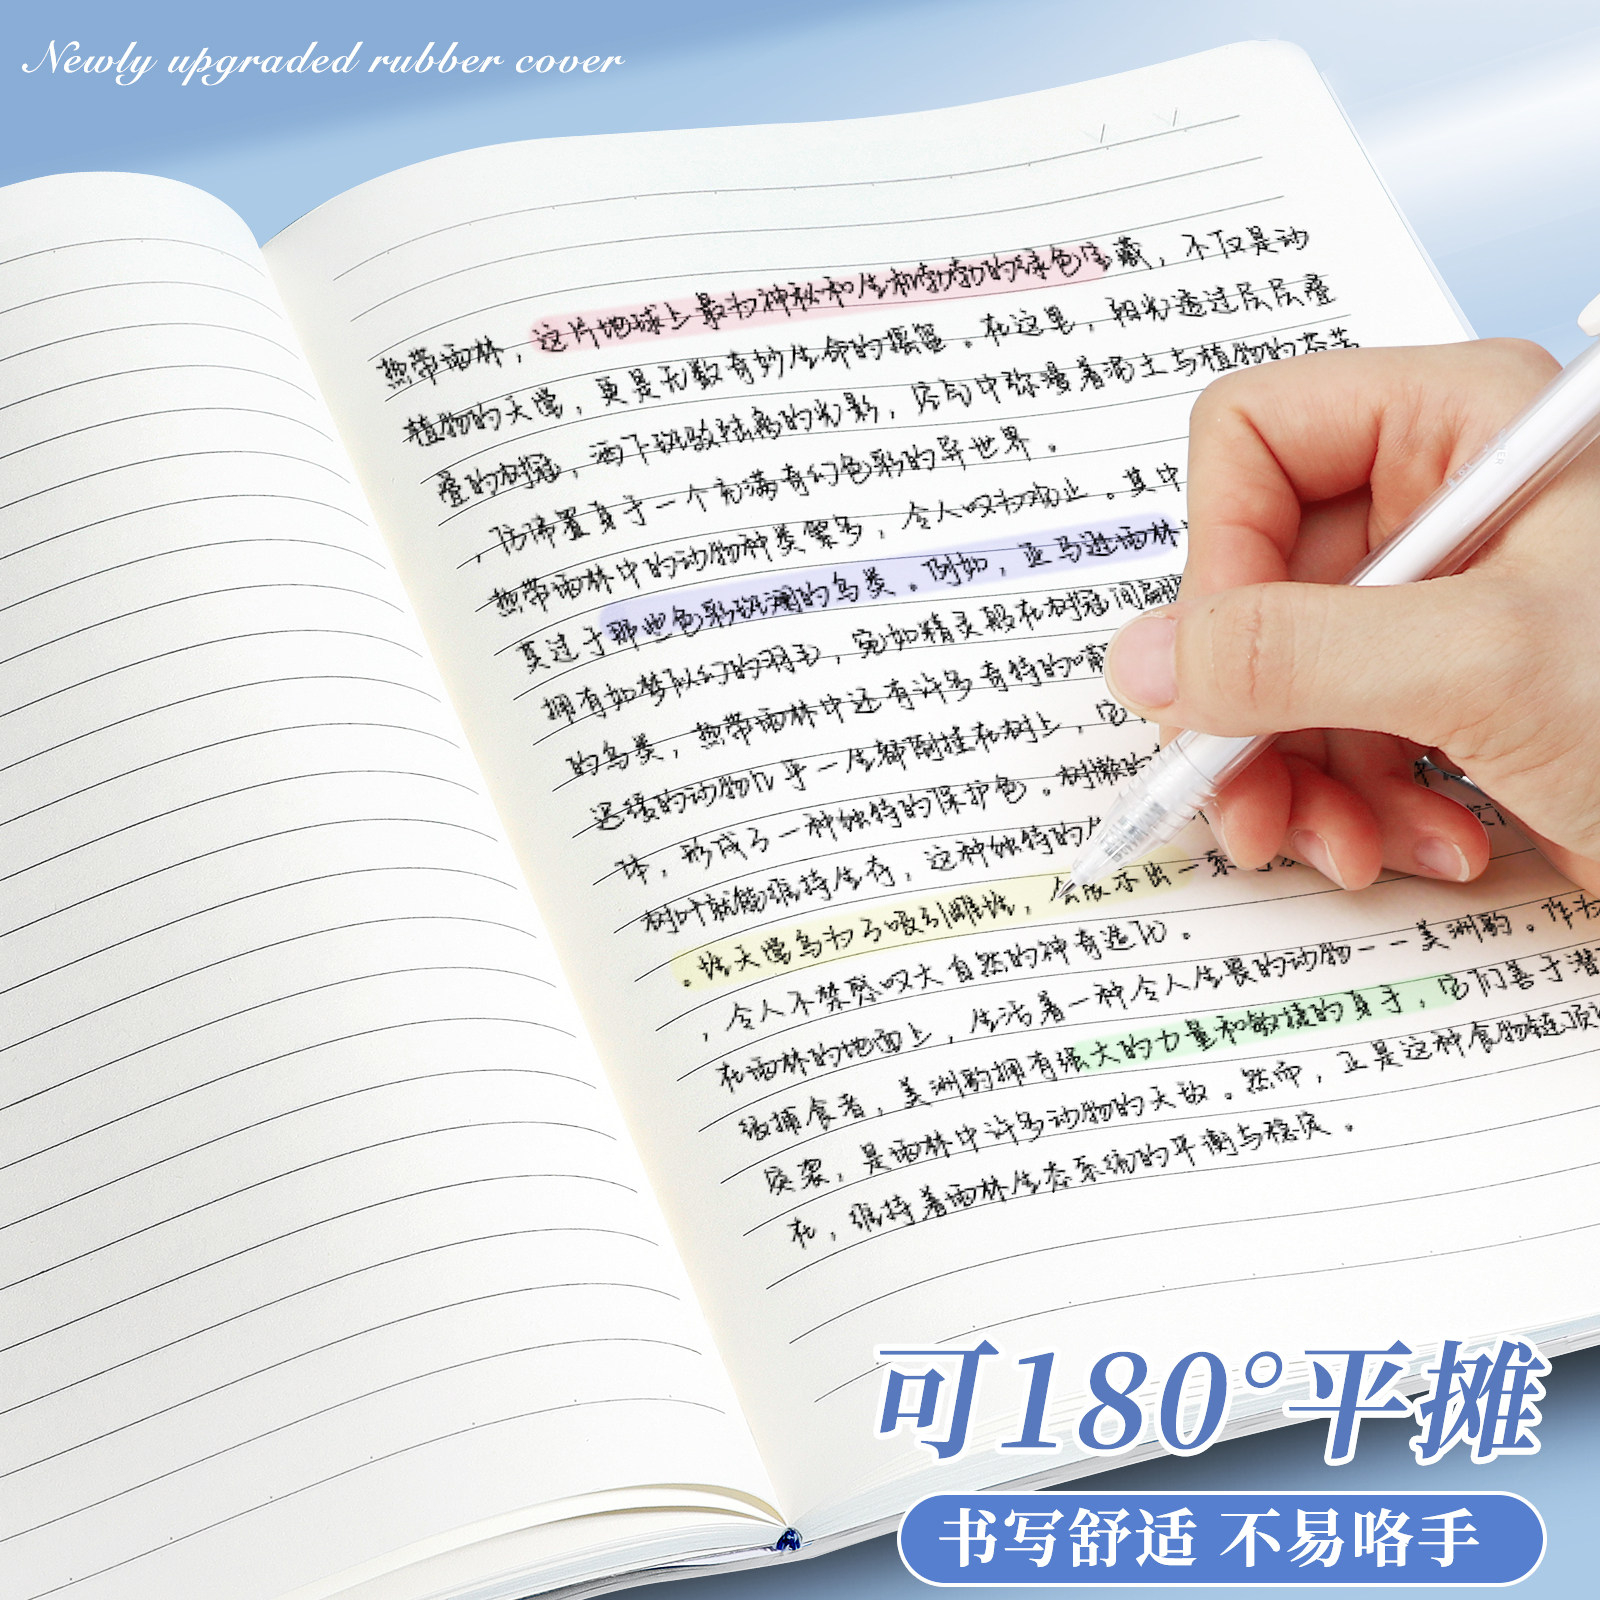 Newly upgraded rubber cover
热带雨林，这片地球上最为神秘和生机勃勃的绿色宝藏，不仅是动
植物的天堂，更是无数奇妙生命的摇篮。在这里，阳光透过层层叠
叠的树冠，洒下斑驳陆离的光影，空气中弥漫着湿土与植物的芬芳
，仿佛置身于一个充满奇幻色彩的异世界。
热带雨林中的动物种类繁多，令人叹为观止。其中
莫过于那些色彩斑斓的鸟类。例如，亚马逊雨林
拥有如梦似幻的羽毛，宛如精灵般在树冠间翩
的鸟类，热带雨林中还有许多奇特的哺
迟缓的动物几乎一生都倒挂在树上，它
体，形成了一种独特的保护色。树懒的
树叶就能维持生存，这种独特的生
。堂天堂鸟为了吸引雌性，会展示出一系
，令人不禁感叹大自然的神奇造化。
在雨林的地面上，生活着一种令人生畏的动物--美洲豹。作为
级捕食者，美洲豹拥有强大的力量和敏捷的身手，它们善于潜
突袭，是雨林中许多动物的天敌。然而，正是这种食物链顶
在，维持着雨林生态系统的平衡与稳定。
可180°平摊
书写舒适 不易咯手